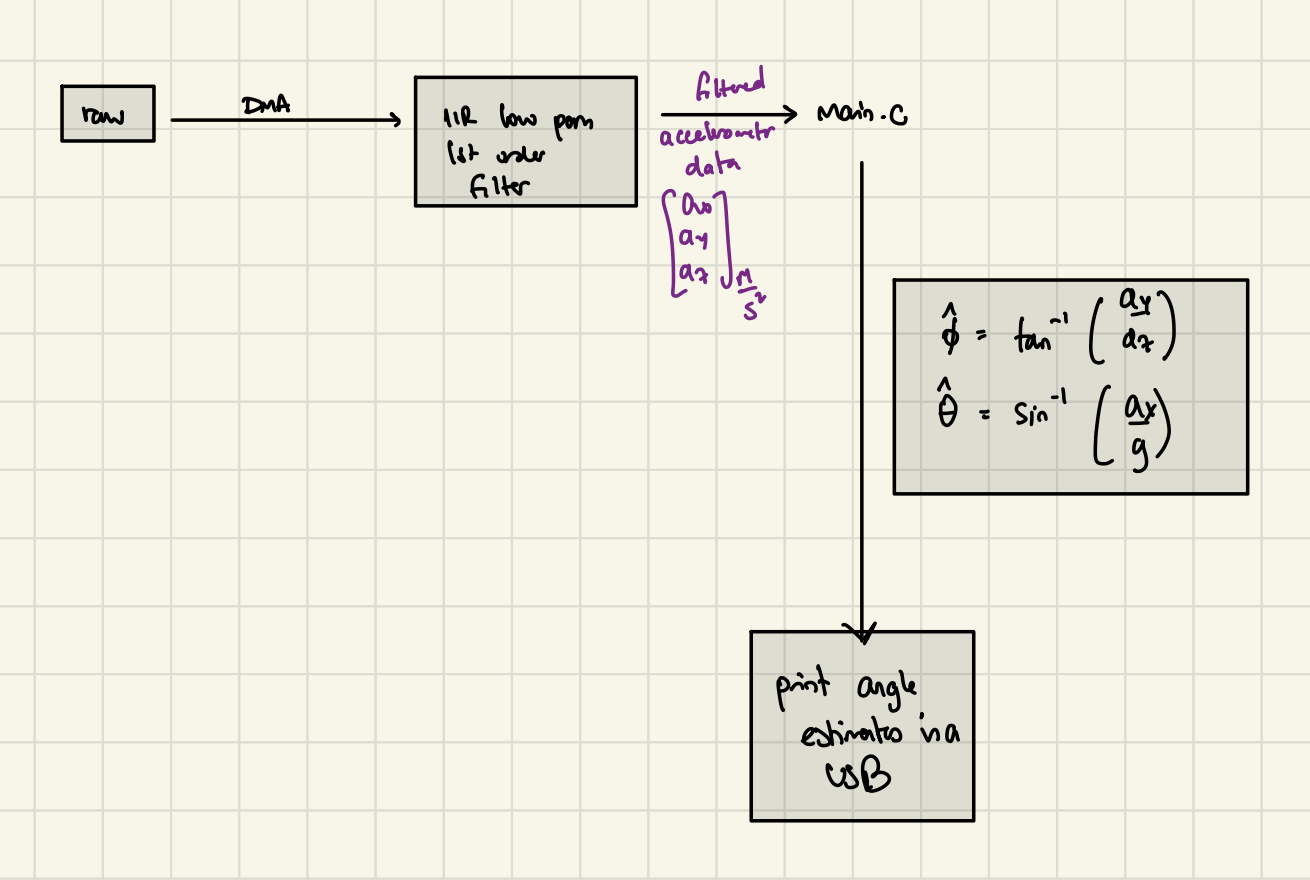 raw
DMA
IIR low pass
1st order
filter
filtered
accelerometr
data
[ax
ay
az] m/s²
Main.C
φ̂ = tan⁻¹ (ay/az)
θ̂ = sin⁻¹ (ax/g)
print angle
estimates via
USB